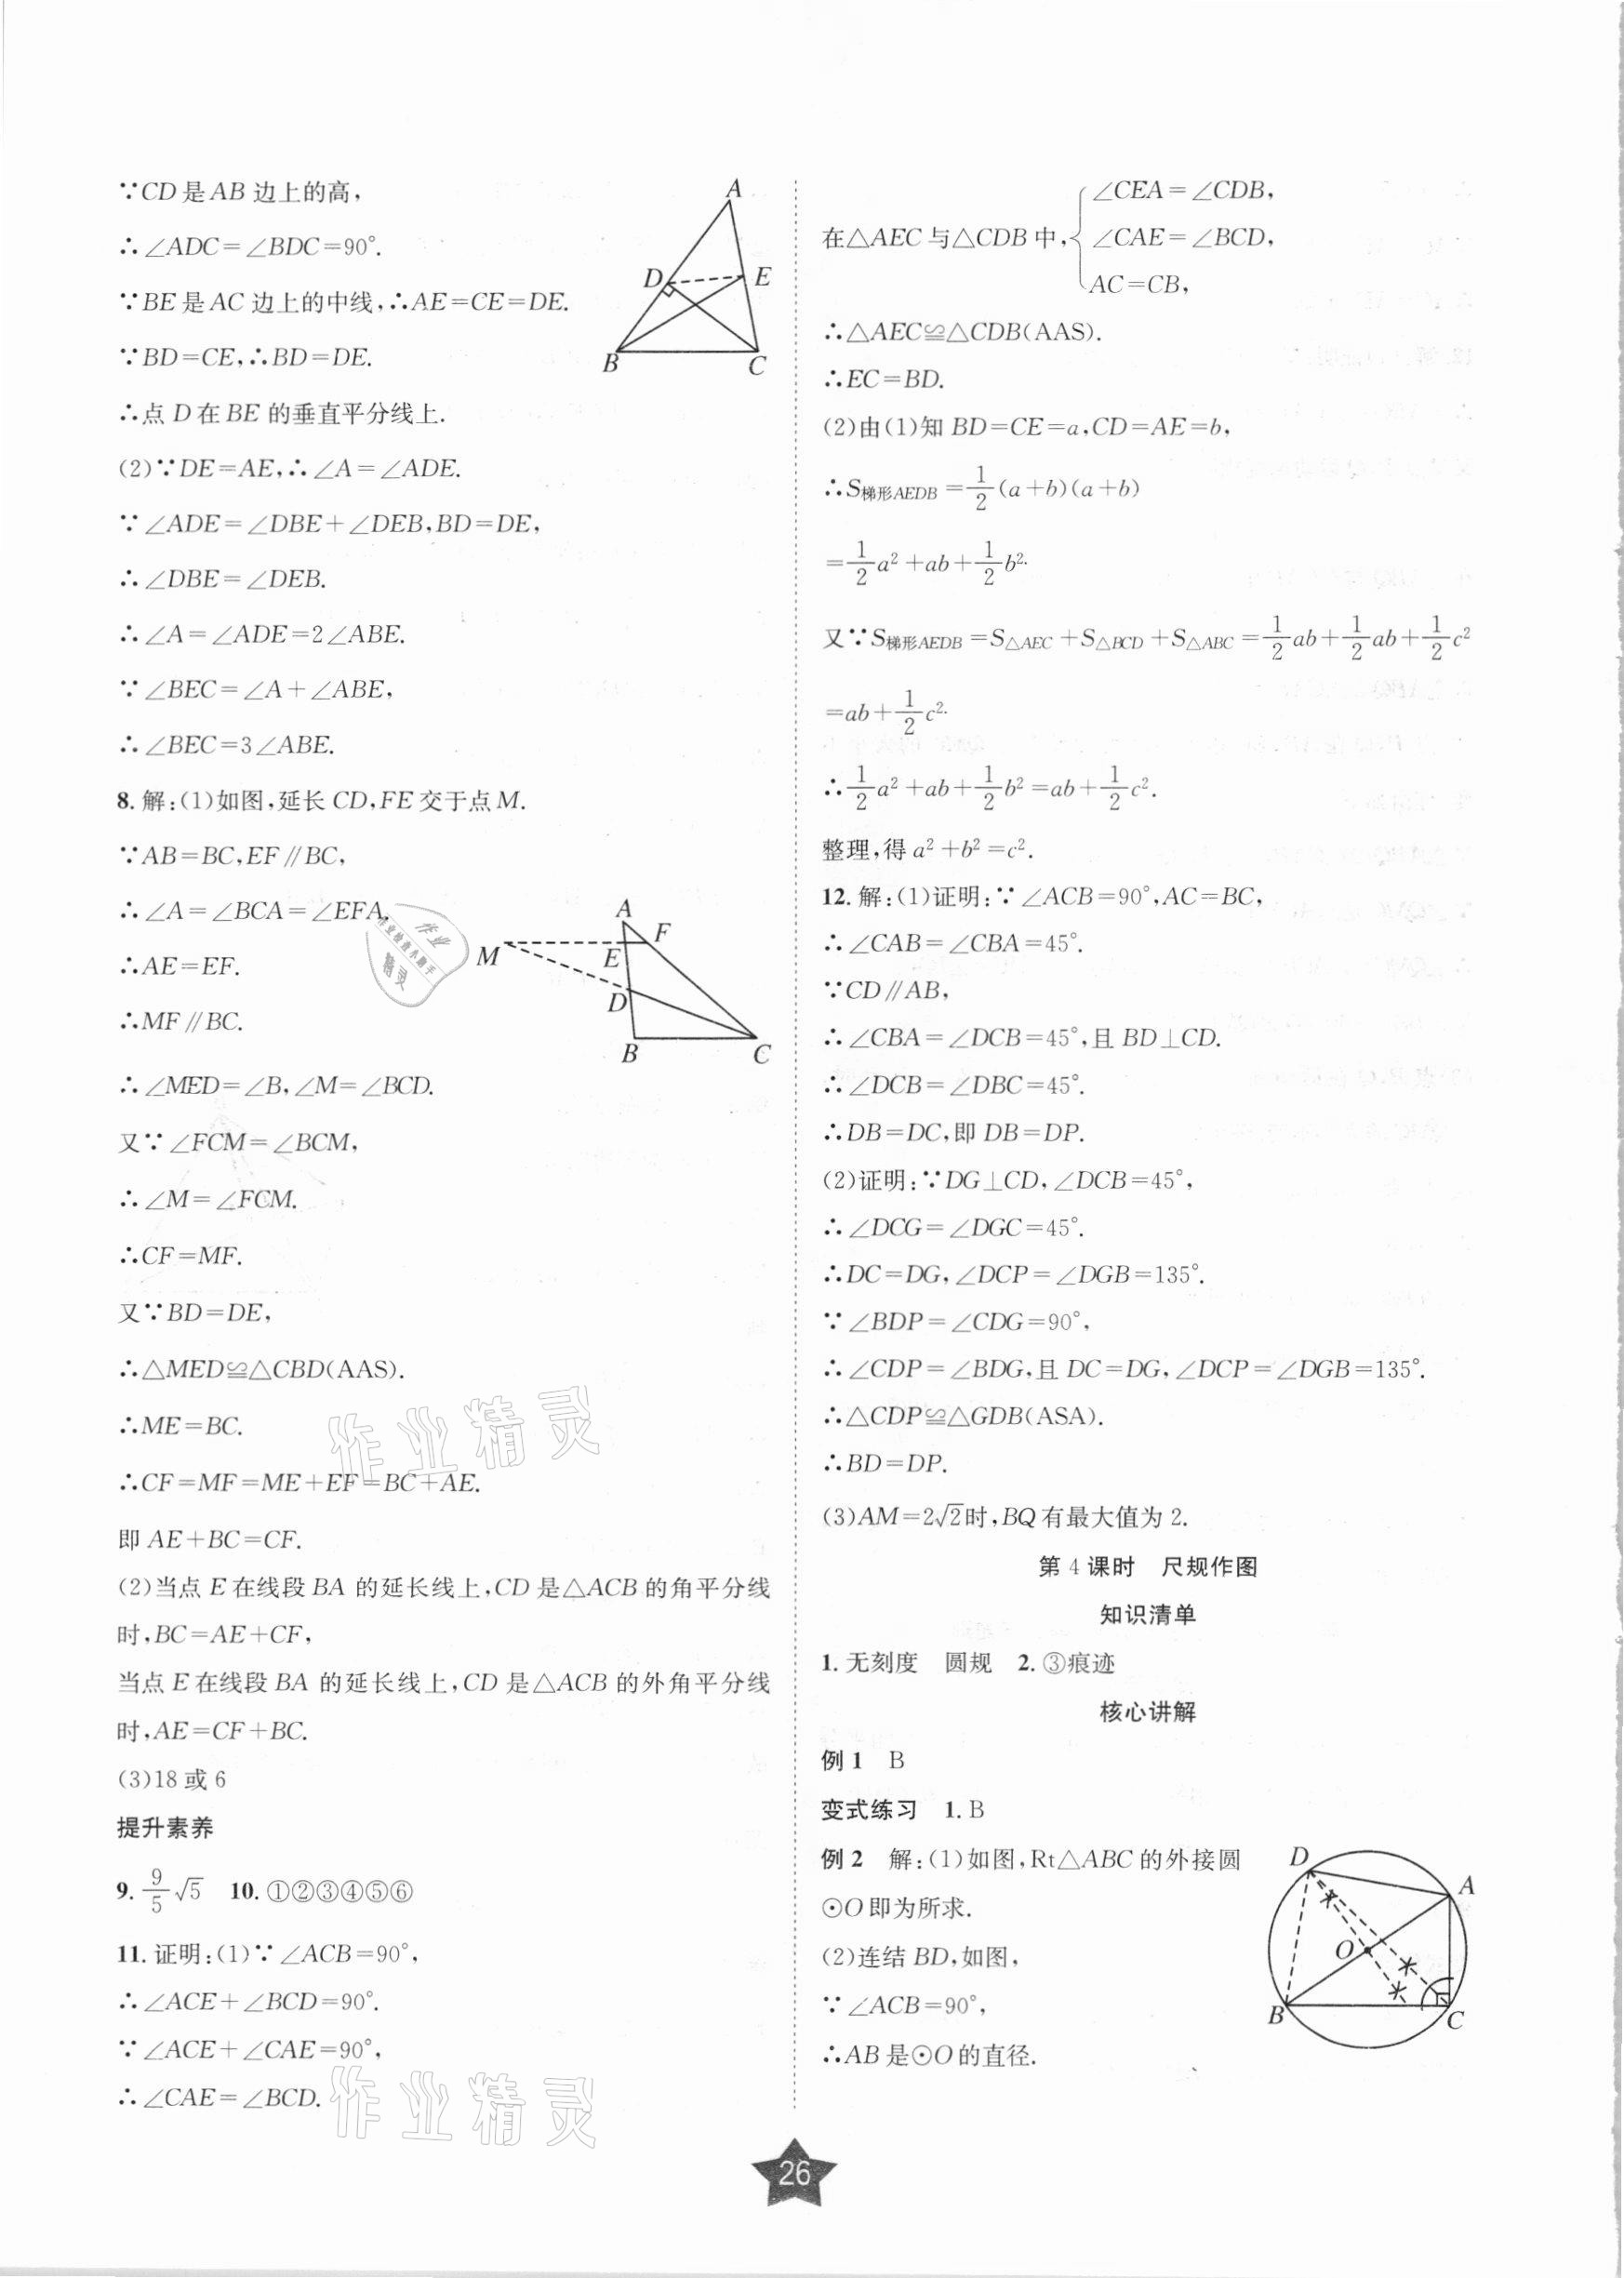 ∵CD是AB边上的高,
∴∠ADC=∠BDC=90°.
∵BE是AC边上的中线,∴AE=CE=DE.
∵BD=CE,∴BD=DE.
∴点D在BE的垂直平分线上.
(2)∵DE=AE,∴∠A=∠ADE.
∵∠ADE=∠DBE+∠DEB,BD=DE,
∴∠DBE=∠DEB.
∴∠A=∠ADE=2∠ABE.
∵∠BEC=∠A+∠ABE,
∴∠BEC=3∠ABE.
A
D
E
B
C
8.解:(1)如图,延长CD,FE交于点M.
∵AB=BC,EF∥BC,
∴∠A=∠BCA=∠EFA.
∴AE=EF.
∴MF∥BC.
∴∠MED=∠B,∠M=∠BCD.
又∵∠FCM=∠BCM,
∴∠M=∠FCM.
∴CF=MF.
又∵BD=DE,
∴△MED≌△CBD(AAS).
∴ME=BC.
∴CF=MF=ME+EF=BC+AE.
即AE+BC=CF.
A
F
M
E
D
B
C
作业
作业检查小助手
精灵
作业精灵
(2)当点E在线段BA的延长线上,CD是△ACB的角平分线
时,BC=AE+CF,
当点E在线段BA的延长线上,CD是△ACB的外角平分线
时,AE=CF+BC.
(3)18或6
提升素养
9. 9/5√5 10.①②③④⑤⑥
11.证明:(1)∵∠ACB=90°,
∴∠ACE+∠BCD=90°.
∵∠ACE+∠CAE=90°,
∴∠CAE=∠BCD.
作业精灵
在△AEC与△CDB中,{∠CEA=∠CDB,
∠CAE=∠BCD,
AC=CB,
∴△AEC≌△CDB(AAS).
∴EC=BD.
(2)由(1)知BD=CE=a,CD=AE=b,
∴S梯形AEDB=1/2(a+b)(a+b)
=1/2a²+ab+1/2b².
又∵S梯形AEDB=S△AEC+S△BCD+S△ABC=1/2ab+1/2ab+1/2c²
=ab+1/2c².
∴1/2a²+ab+1/2b²=ab+1/2c².
整理,得a²+b²=c².
12.解:(1)证明:∵∠ACB=90°,AC=BC,
∴∠CAB=∠CBA=45°.
∵CD∥AB,
∴∠CBA=∠DCB=45°,且BD⊥CD.
∴∠DCB=∠DBC=45°.
∴DB=DC,即DB=DP.
(2)证明:∵DG⊥CD,∠DCB=45°,
∴∠DCG=∠DGC=45°.
∴DC=DG,∠DCP=∠DGB=135°.
∵∠BDP=∠CDG=90°,
∴∠CDP=∠BDG,且DC=DG,∠DCP=∠DGB=135°.
∴△CDP≌△GDB(ASA).
∴BD=DP.
(3)AM=2√2时,BQ有最大值为2.
第4课时 尺规作图
知识清单
1.无刻度 圆规 2.③痕迹
核心讲解
例1 B
变式练习 1.B
例2 解:(1)如图,Rt△ABC的外接圆
⊙O即为所求.
(2)连结BD,如图,
∵∠ACB=90°,
∴AB是⊙O的直径.
D
A
O
B
C
26